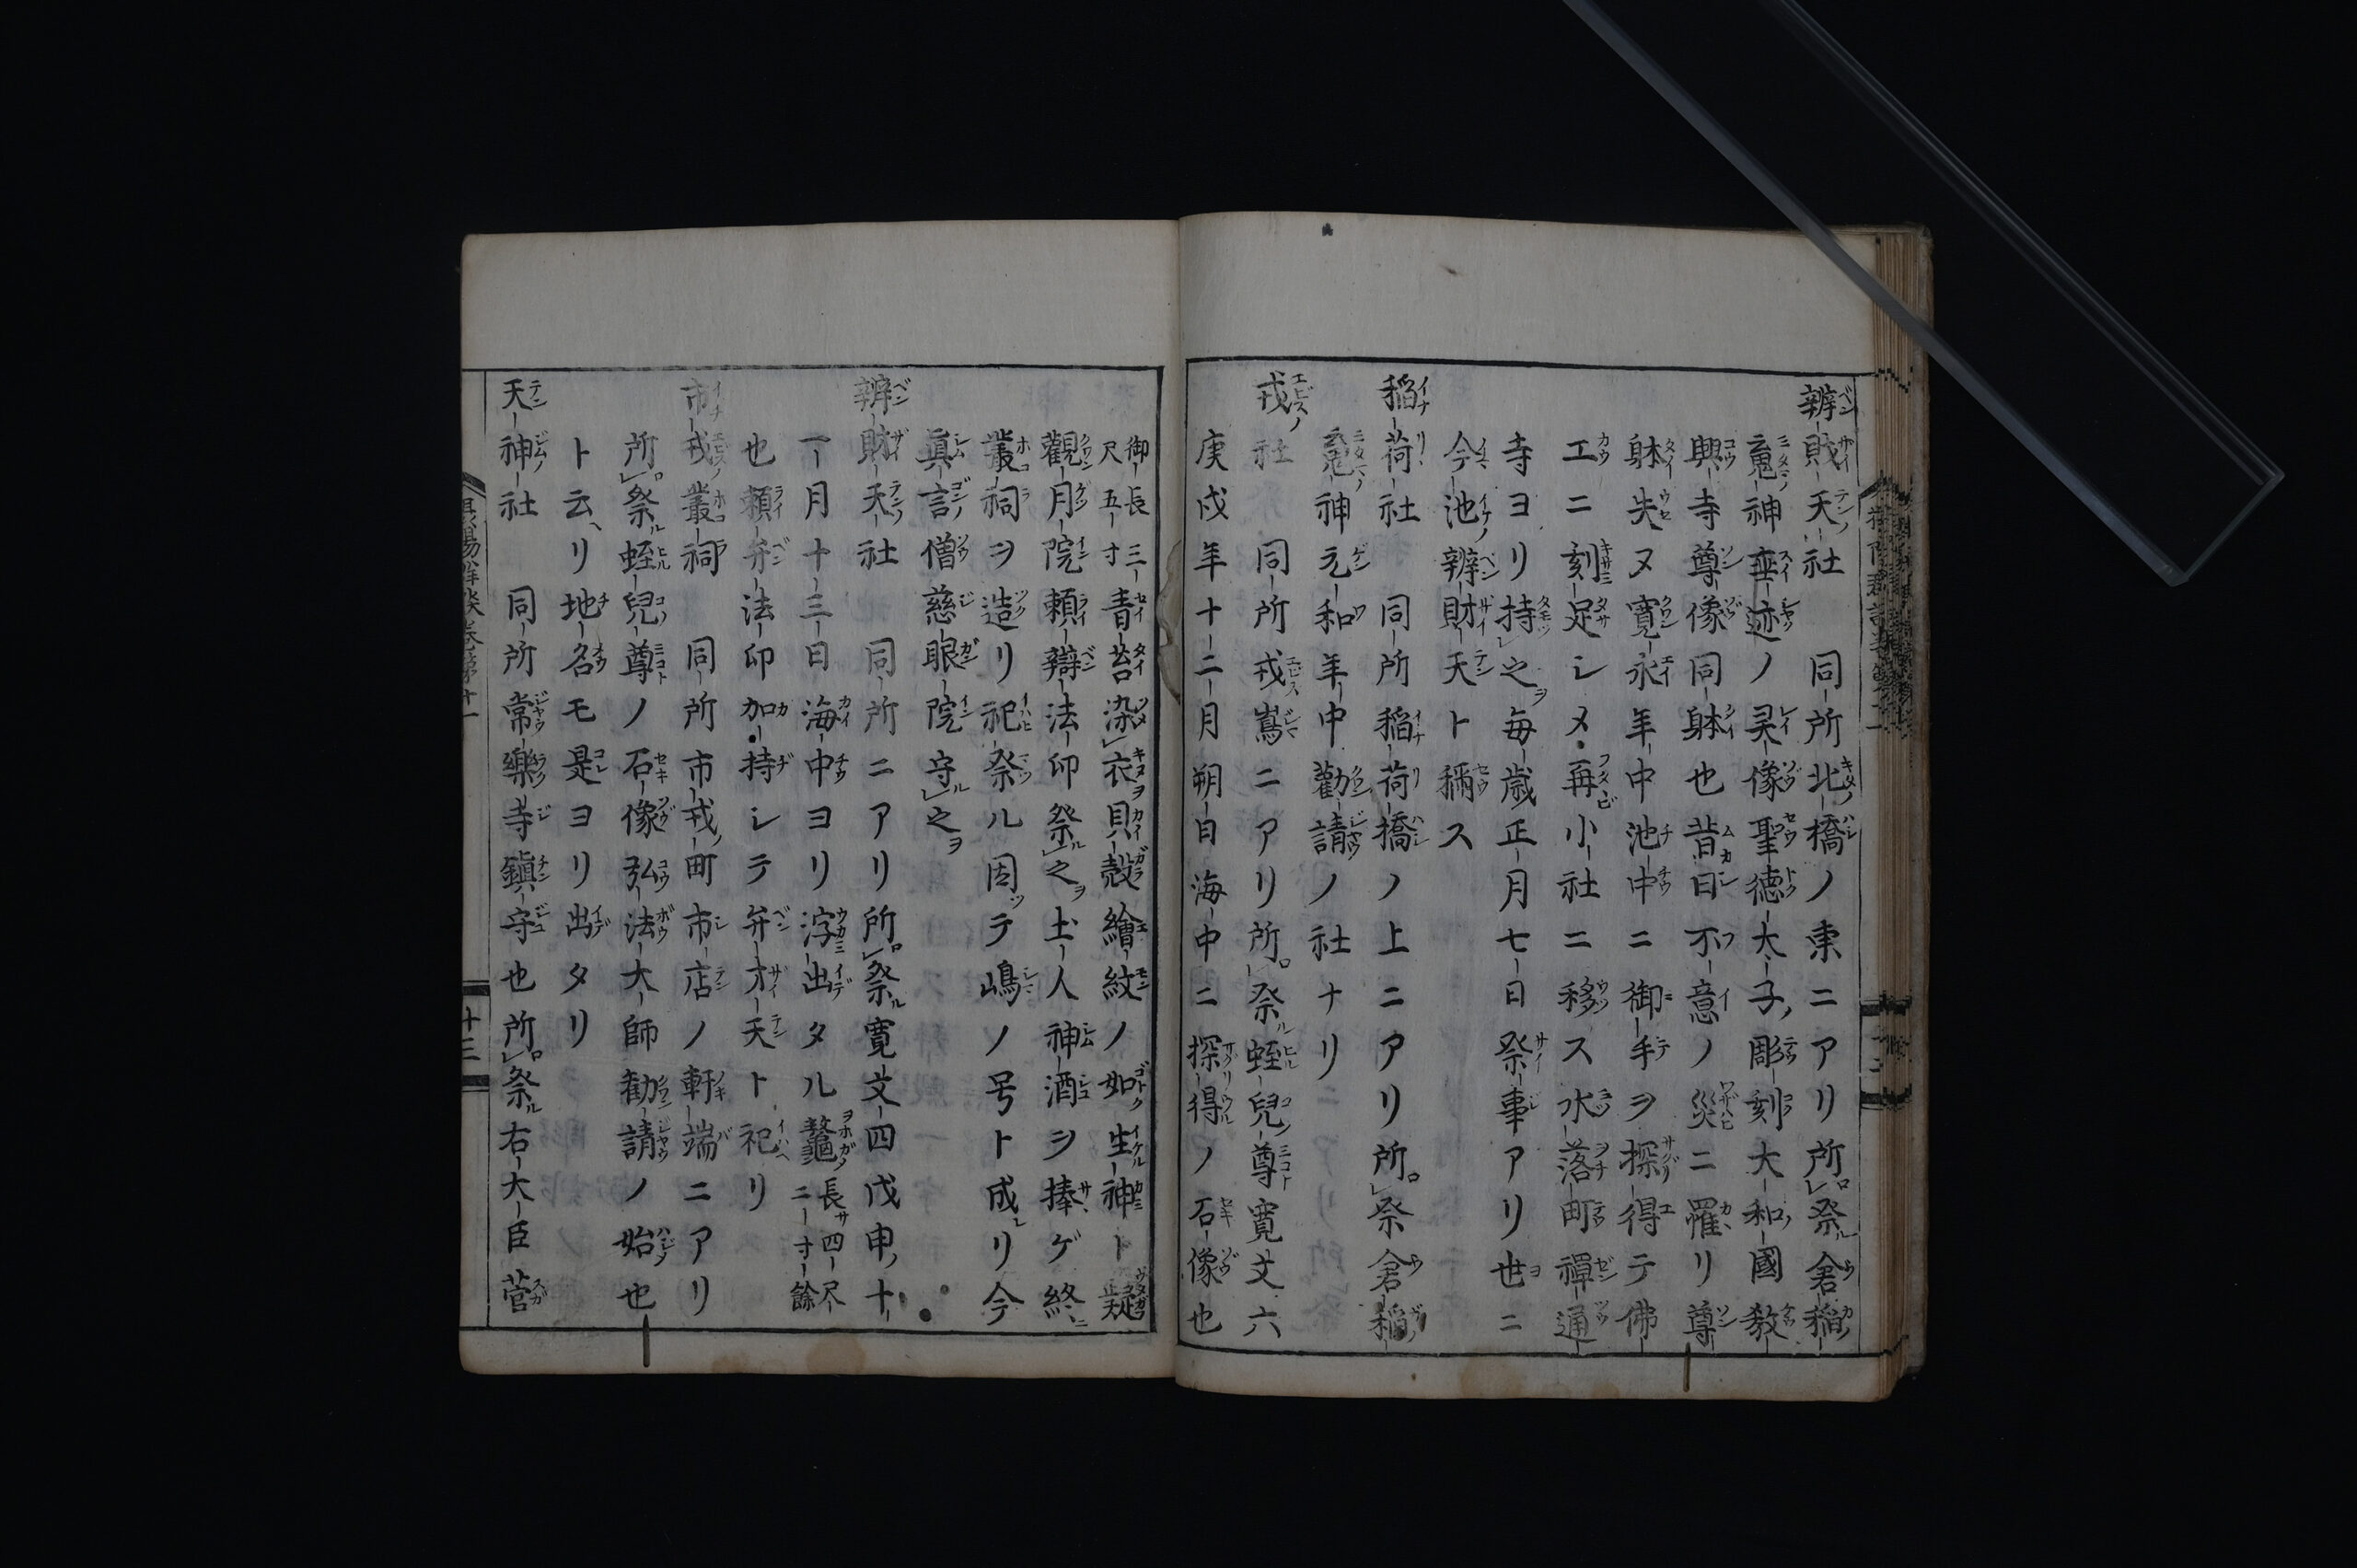 辨財天社 同所北橋ノ東ニアリ所祭倉稲
䰟神垂迹ノ灵像聖徳太子彫刻大和國教
興寺尊像同躰也昔日不意ノ災ニ罹リ尊
躰失ヌ寛永年中池中ニ御手ヲ探得テ佛
工ニ刻足シメ再小社ニ移ス水落町禪通
寺ヨリ持之毎歳正月七日祭事アリ世ニ
今池辨財天ト稱ス
稲荷社 同所稲荷橋ノ上ニアリ所祭倉稲
䰟神元和年中勸請ノ社ナリ
戎社 同所戎嶌ニアリ所祭蛭兒尊寛文六
庚戌年十二月朔日海中ニ探得ノ石像也
御長三尺五寸青苔染衣貝殻繪紋ノ如生神ト疑
觀月院頼辯法印祭之土人神酒ヲ捧ゲ終
叢祠ヲ造リ祀祭ル因テ嶋ノ号ト成リ今
眞言僧慈眼院守之
辨財天社 同所ニアリ所祭寛文四戊申十
一月十三日海中ヨリ浮出タル鼇長サ四尺二寸餘
也頼弁法印加持シテ弁才天ト祀リ
市戎叢祠 同所市戎町市店ノ軒端ニアリ
所祭蛭兒尊ノ石像弘法大師勧請ノ始也
ト云リ地名モ是ヨリ出タリ
天神社 同所常樂寺鎮守也所祭右大臣菅
十三